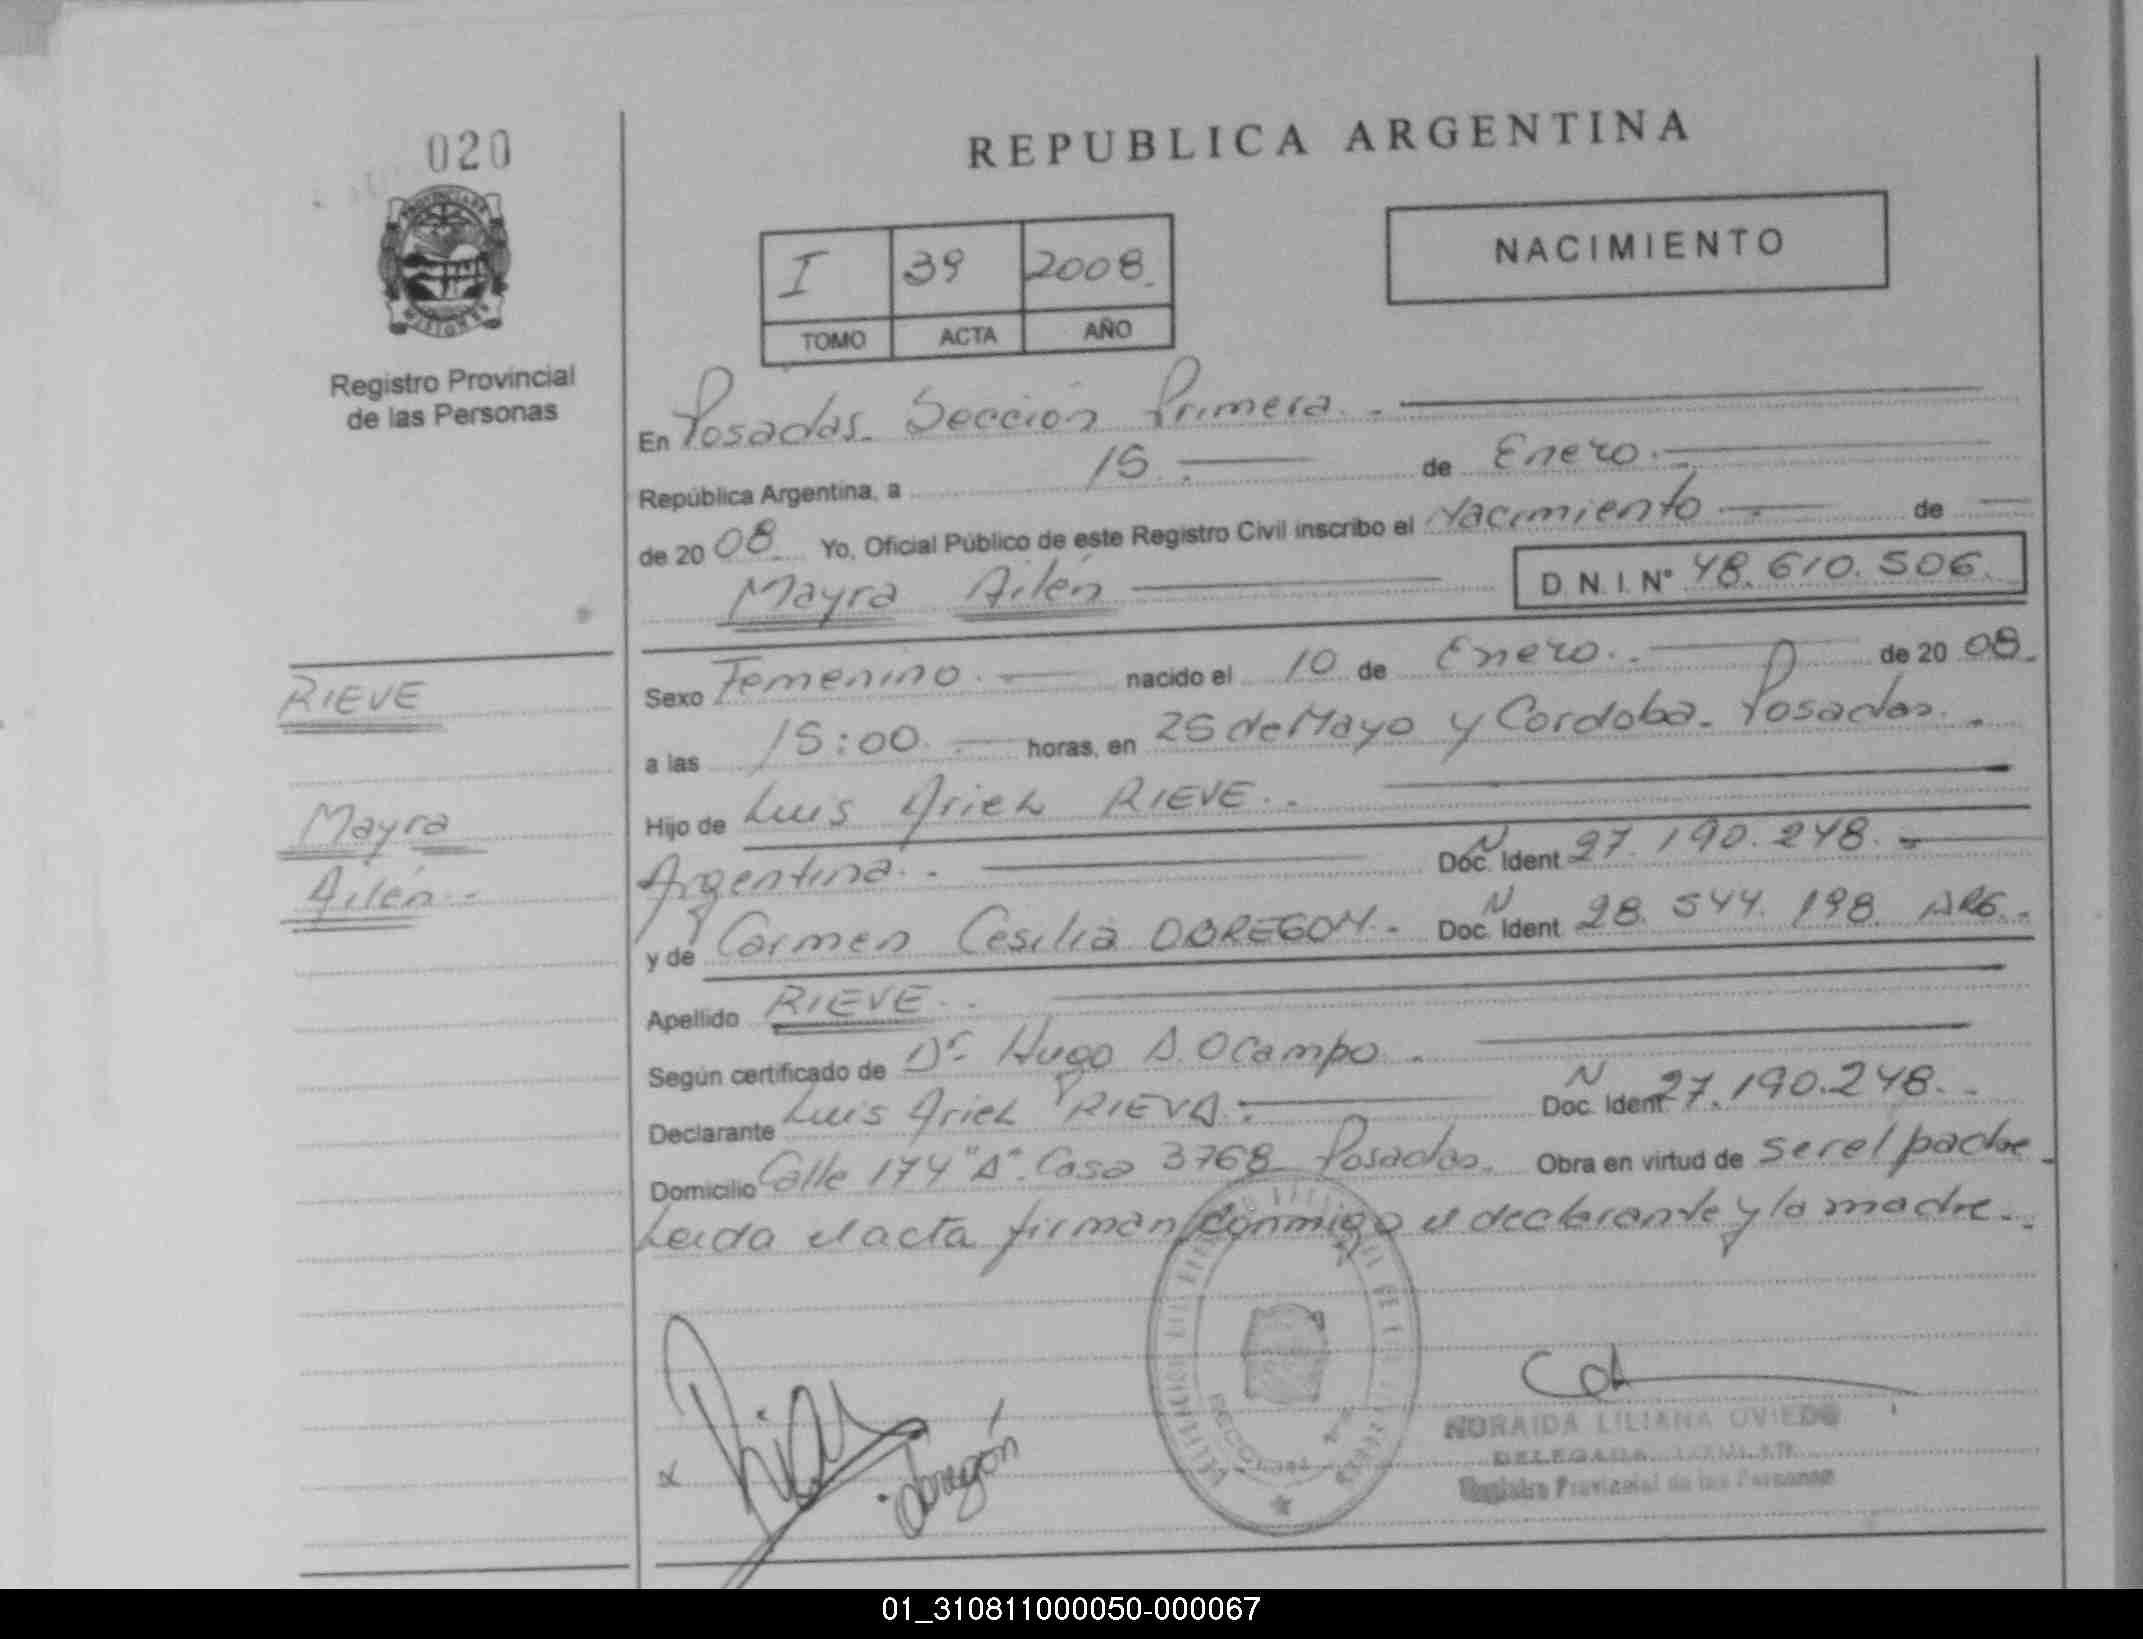 020
REPUBLICA ARGENTINA
NACIMIENTO
I 39 2008.
TOMO ACTA AÑO
MISIONES
Registro Provincial
de las Personas
En Posadas. Sección Primera.
República Argentina, a 15. de Enero.
de 2008. Yo, Oficial Público de este Registro Civil inscribo el Nacimiento de
Mayra Ailén D.N.I.N° 48.610.506.
Sexo Femenino. nacido el 10 de Enero. de 2008.
RIEVE
a las 15:00. horas, en 25 de Mayo y Cordoba. Posadas.
Mayra
Hijo de Luis Ariel RIEVE.
Ailén
Argentina. Doc. Ident N 27.190.248.
y de Carmen Cesilia OBREGON. Doc. Ident N 28.544.198. ARG.
Apellido RIEVE.
Según certificado de Dr. Hugo A. Ocampo.
Declarante Luis Ariel RIEVA. Doc. Ident N 27.190.248.
Domicilio Calle 174 "A". Casa 3768 Posadas. Obra en virtud de ser el padre
Leida el acta firman conmigo el declarante y la madre.
x
obregón
NORAIDA LILIANA OVIEDO
DELEGADA
Registro Provincial de las Personas
01_310811000050-000067